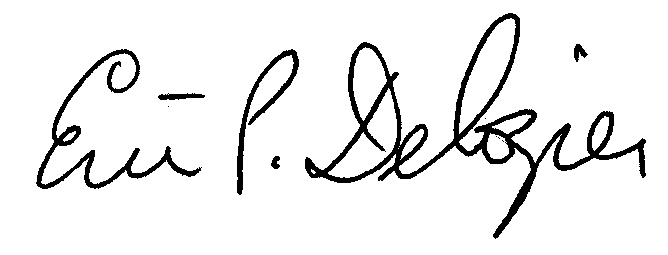 Eric P. Delozier